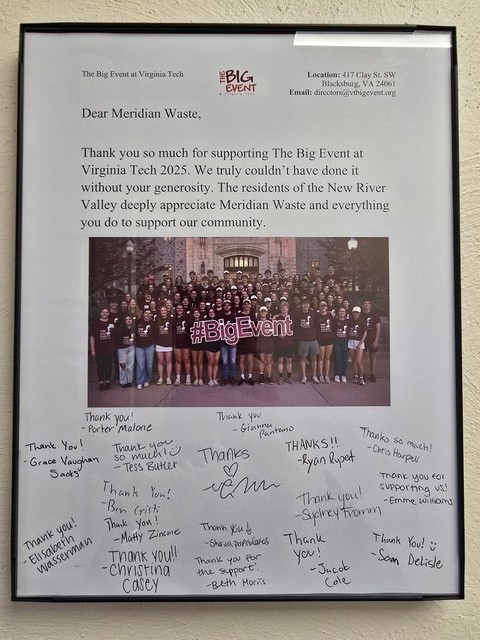 The Big Event at Virginia Tech
THE
BIG
EVENT
@ Virginia Tech
Location: 417 Clay St. SW
Blacksburg, VA 24061
Email: directors@vtbigevent.org
Dear Meridian Waste,
Thank you so much for supporting The Big Event at
Virginia Tech 2025. We truly couldn't have done it
without your generosity. The residents of the New River
Valley deeply appreciate Meridian Waste and everything
you do to support our community.
#BigEvent
Thank you!
- Porter Malone
Thank you
- Gianna
Pantano
Thank You!
- Grace Vaughan
Sacks
Thank you
so much!
- Tess Butler
Thanks
THANKS!!
- Ryan Rupet
Thanks so much!
- Chris Harper
Thank you for
supporting us!
- Emme Williams
Thank You!
- Ben Cristi
Thank you!
- Sydney Fromm
Thank you!
- Elisabeth
Wasserman
Thank You!
- Matty Zincone
Thank you
- Shawa
Thank you!!
- Christina
Casey
Thank you for
the support!
- Beth Morris
Thank
you!
- Jacob
Cole
Thank You!
- Sam DeLisle